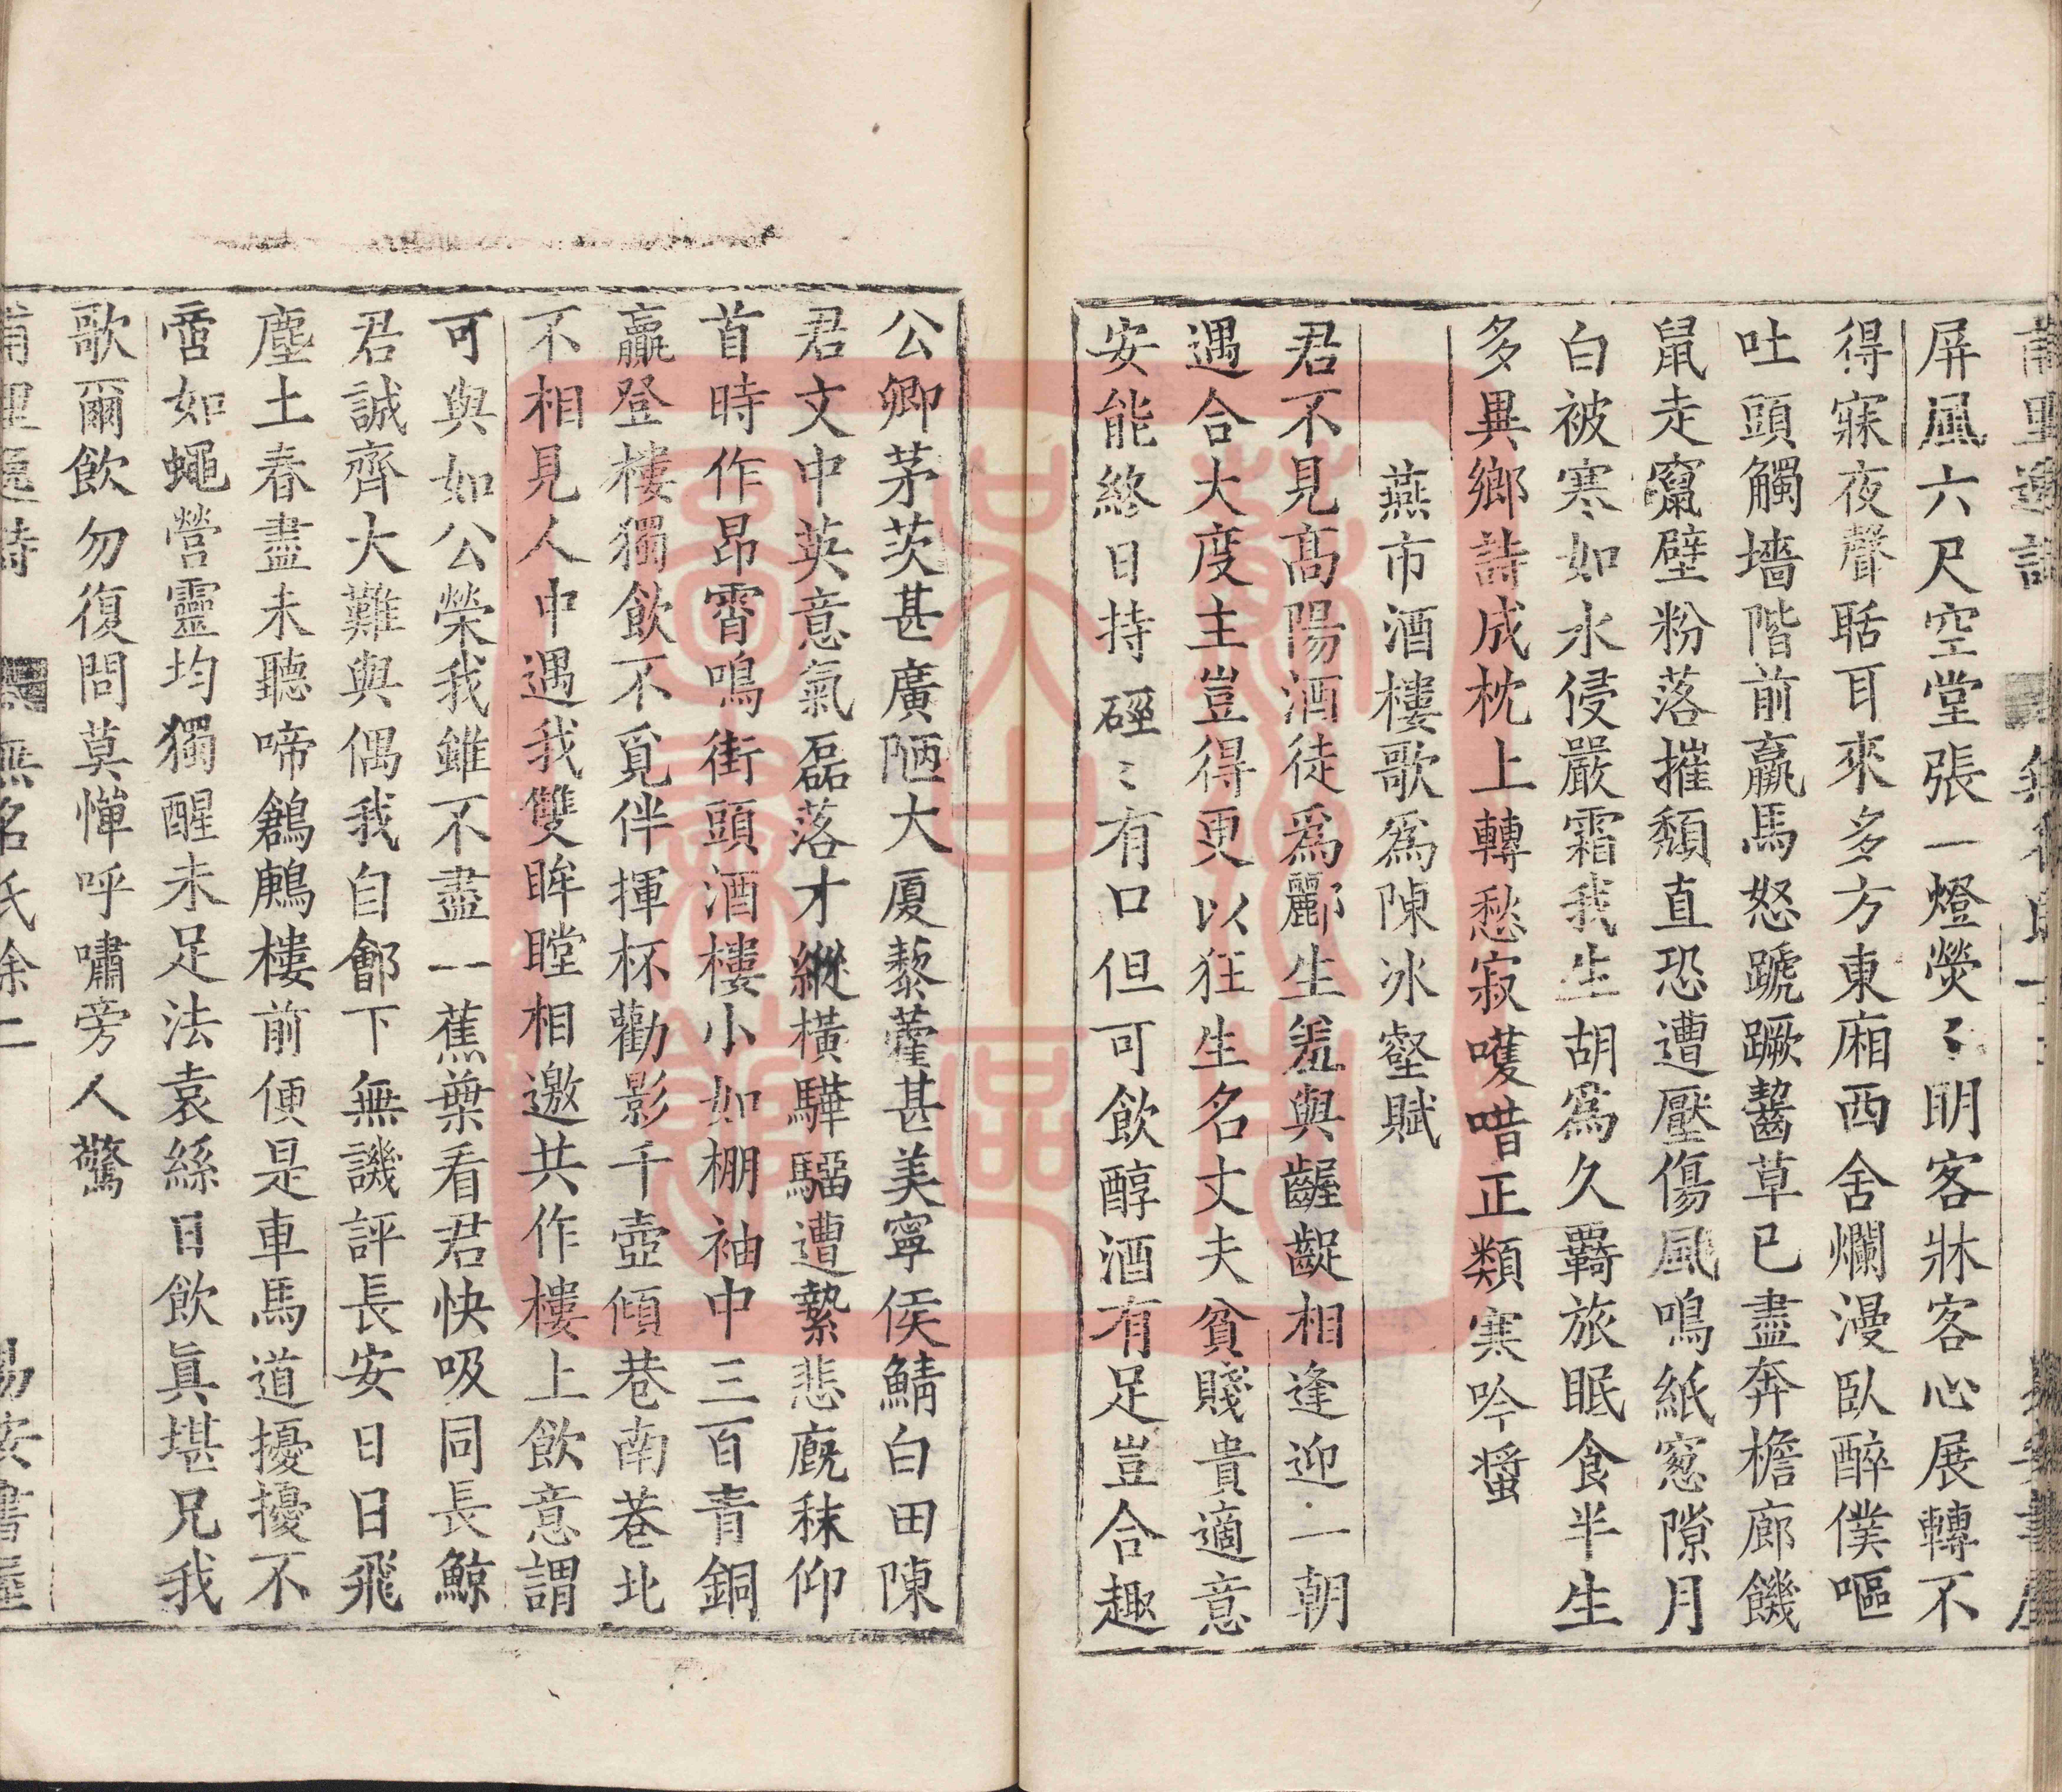 屏風六尺空堂張一燈熒〻明客牀客心展轉不
得寐夜聲聒耳來多方東廂西舍爛漫臥醉僕嘔
吐頭觸墻階前羸馬怒蹏蹶齧草已盡奔檐廊饑
鼠走竄壁粉落摧頹直恐遭壓傷風鳴紙窓隙月
白被寒如水侵嚴霜我生胡爲久羇旅眠食半生
多異鄉詩成枕上轉愁寂嚄唶正類寒吟螿
燕市酒樓歌爲陳冰壑賦
君不見高陽酒徒爲酈生羞與齷齪相逢迎一朝
遇合大度主豈得更以狂生名丈夫貧賤貴適意
安能終日持硜〻有口但可飲醇酒有足豈合趣
公卿茅茨甚廣陋大厦藜藿甚美寧侯鯖白田陳
君文中英意氣磊落才縱橫驊騮遭縶悲廐秣仰
首時作昂霄鳴街頭酒樓小如棚袖中三百青銅
贏登樓獨飲不覓伴揮杯勸影千壺傾巷南巷北
不相見人中遇我雙眸瞠相邀共作樓上飲意謂
可與如公榮我雖不盡一蕉葉看君快吸同長鯨
君誠齊大難與偶我自鄶下無譏評長安日日飛
塵土春盡未聽啼鶬鶊樓前便是車馬道擾擾不
啻如蠅營靈均獨醒未足法袁絲日飲眞堪兄我
歌爾飲勿復問莫憚呼嘯旁人驚